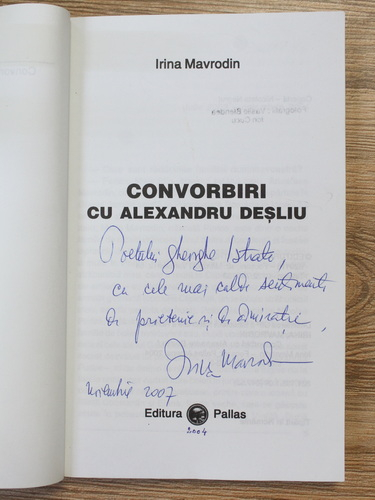 Irina Mavrodin
CONVORBIRI
CU ALEXANDRU DEȘLIU
Poetului Gheorghe Istrate,
cu cele mai calde sentimente
de prietenie și de admirație,
Irina Mavrodin
Noiembrie 2007
Editura Pallas
2004